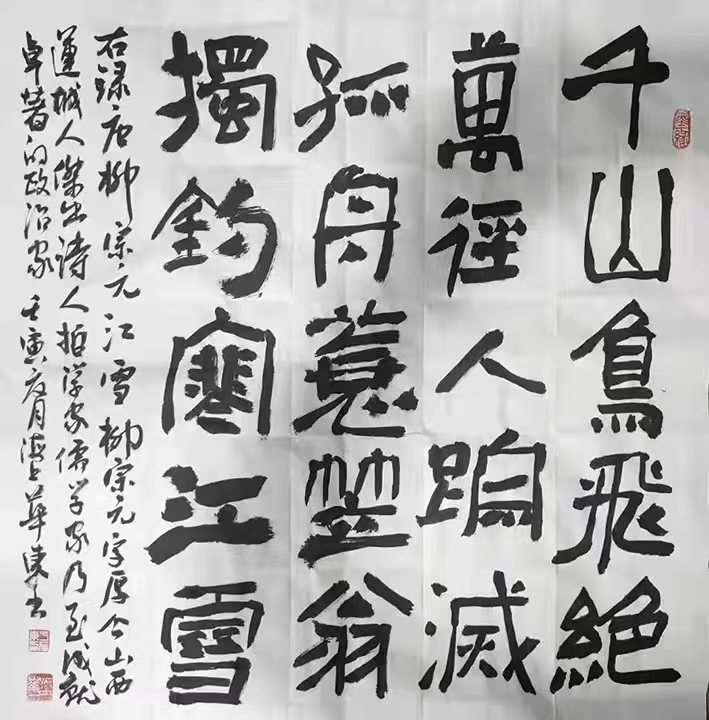 千山鳥飛絕
萬徑人蹤滅
孤舟蓑笠翁
獨釣寒江雪
右錄唐柳宗元江雪柳宗元字厚今山西
運城人傑出詩人哲学家儒学家乃至成就
卓著的政治家壬寅夏月滬上華東书